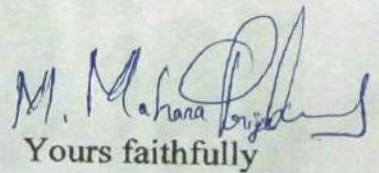 M. Mahara
Yours faithfully